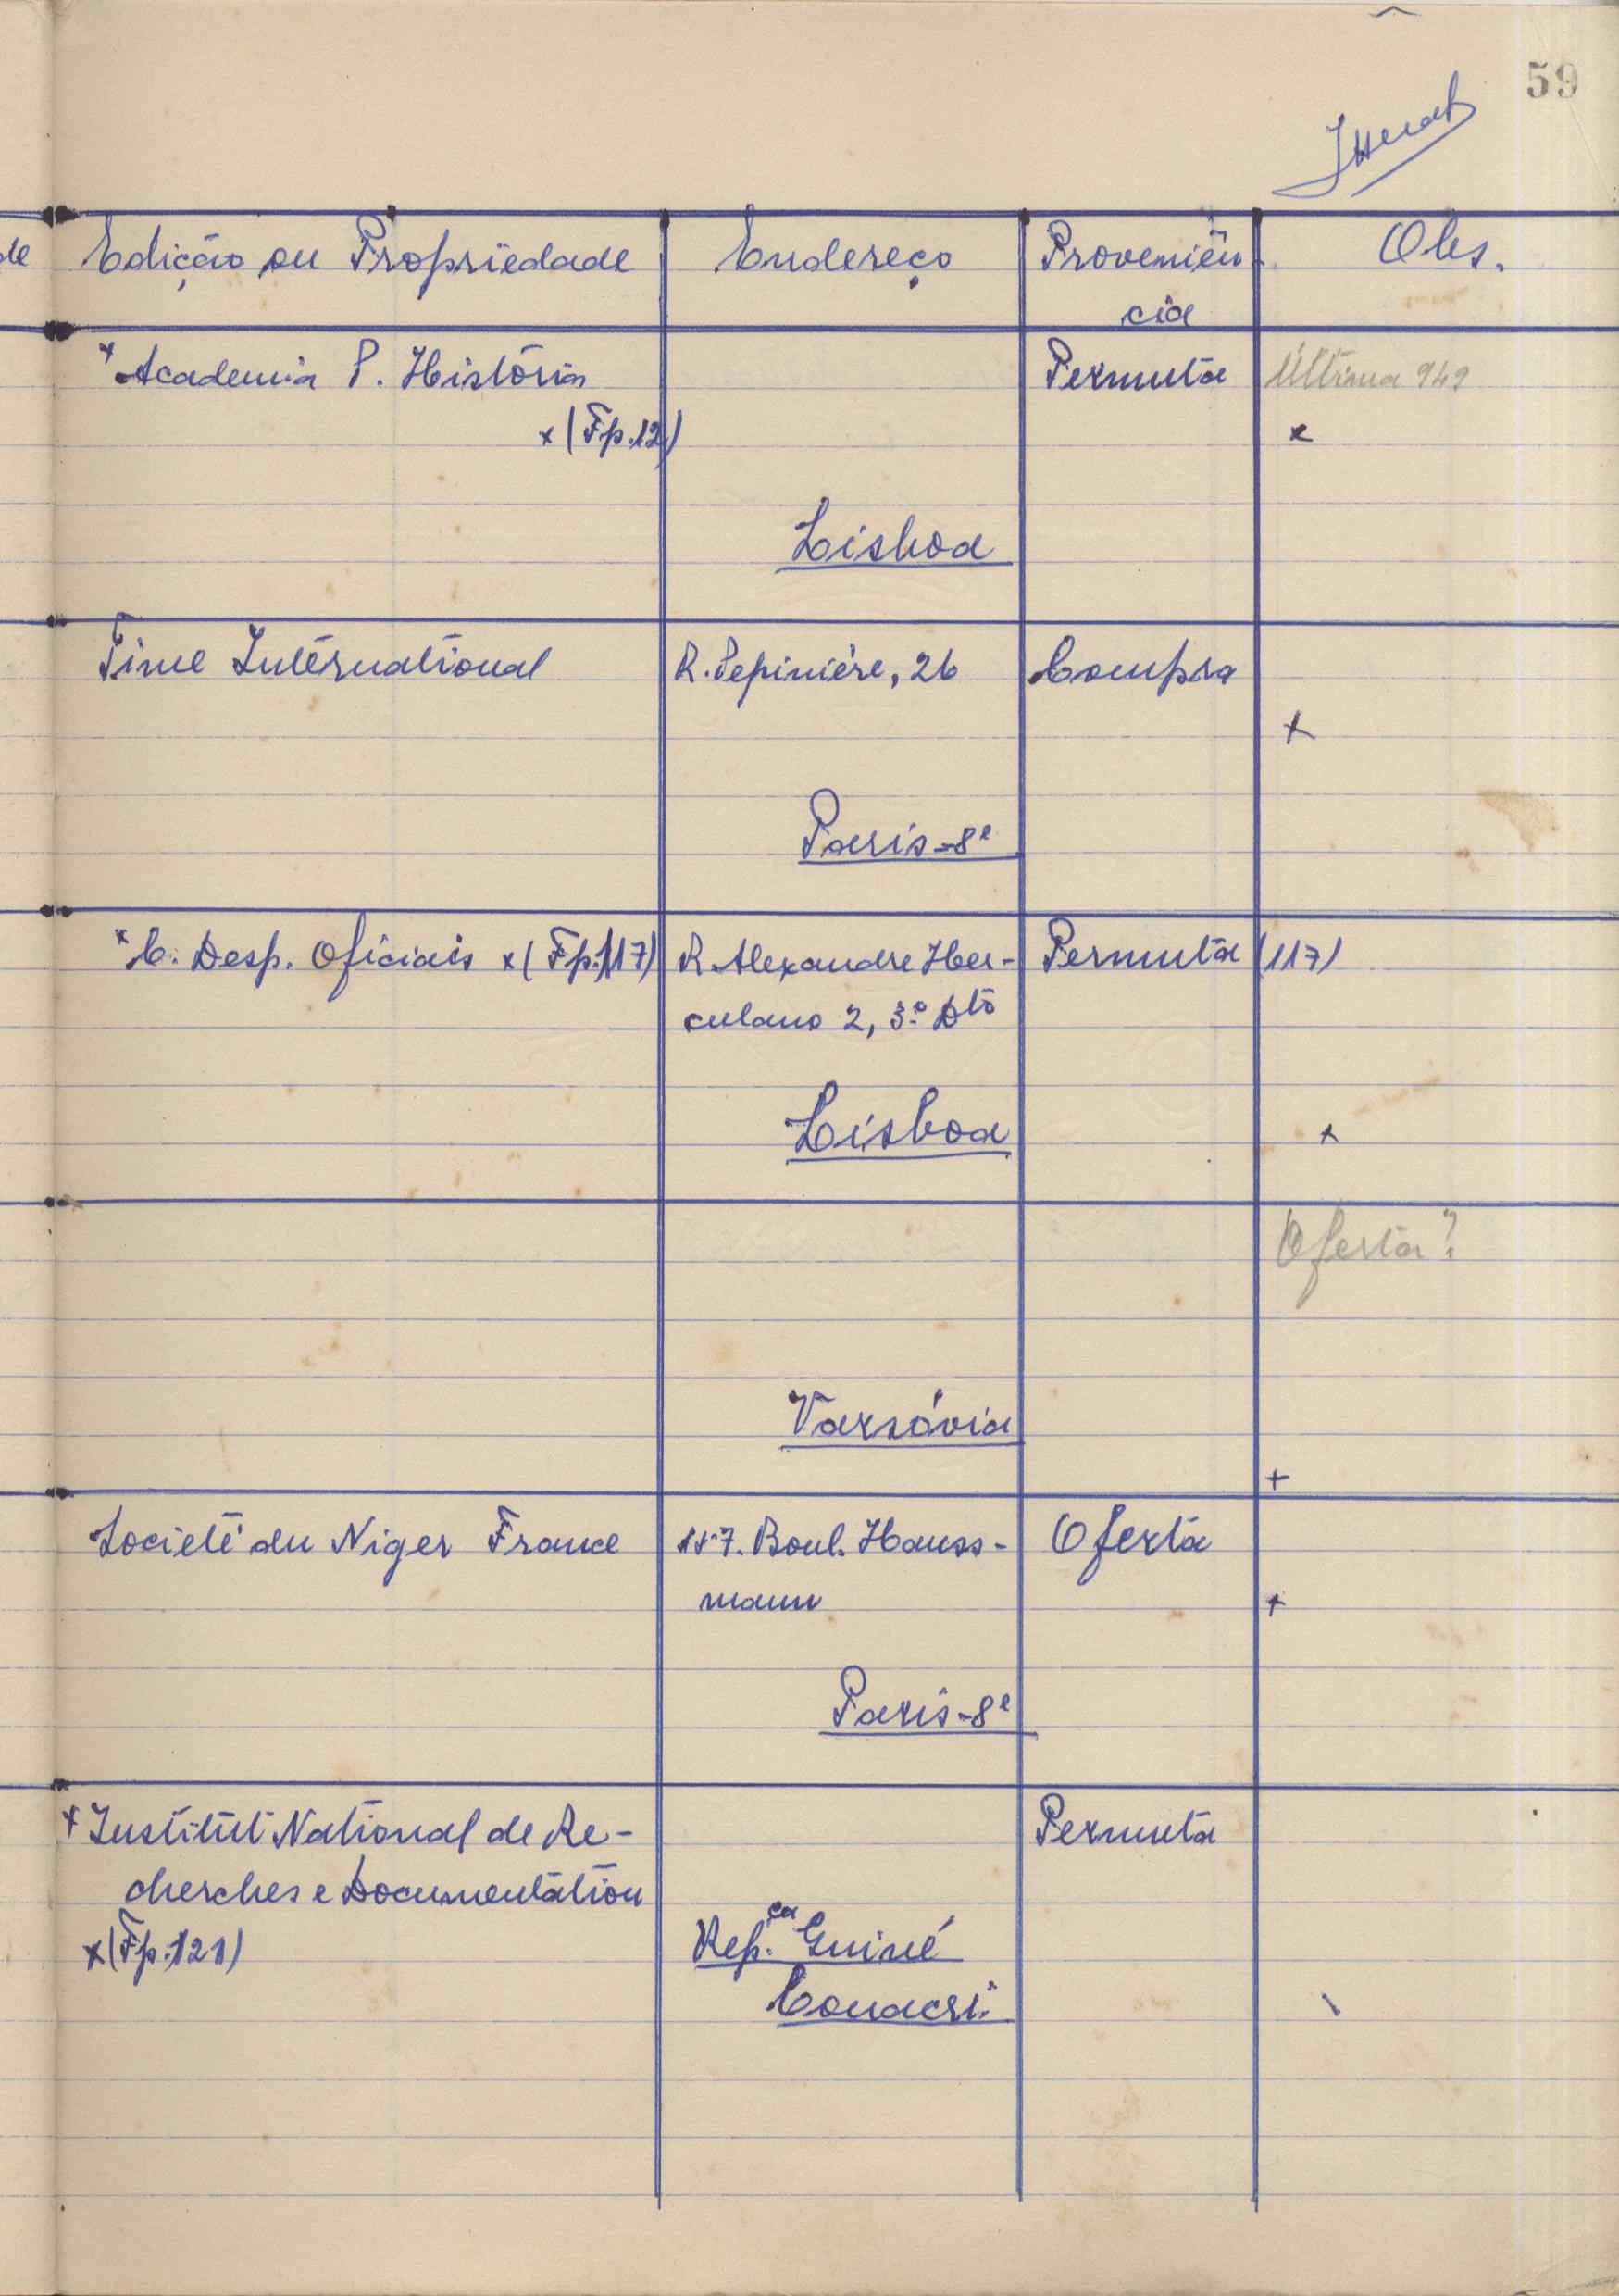 59
de Edição ou Propriedade Endereço Proveniên-
cia Obs.
x Academia P. História Permuta Última 949
x (Fp.12) x
Lisboa
Time International R. Pepinière, 26 Compra
x
Paris-8e
x C. Desp. Oficiais x (Fp.117) R. Alexandre Her- Permuta (117)
culano 2, 3.º Dto
Lisboa x
Oferta?
Varsóvia
+
Societé du Niger France 117. Boul. Hauss- Oferta
mann +
Paris-8e
x Institut National de Re- Permuta
cherches e Documentation
x (Fp.121) Rep.ca Guiné
Conacri \